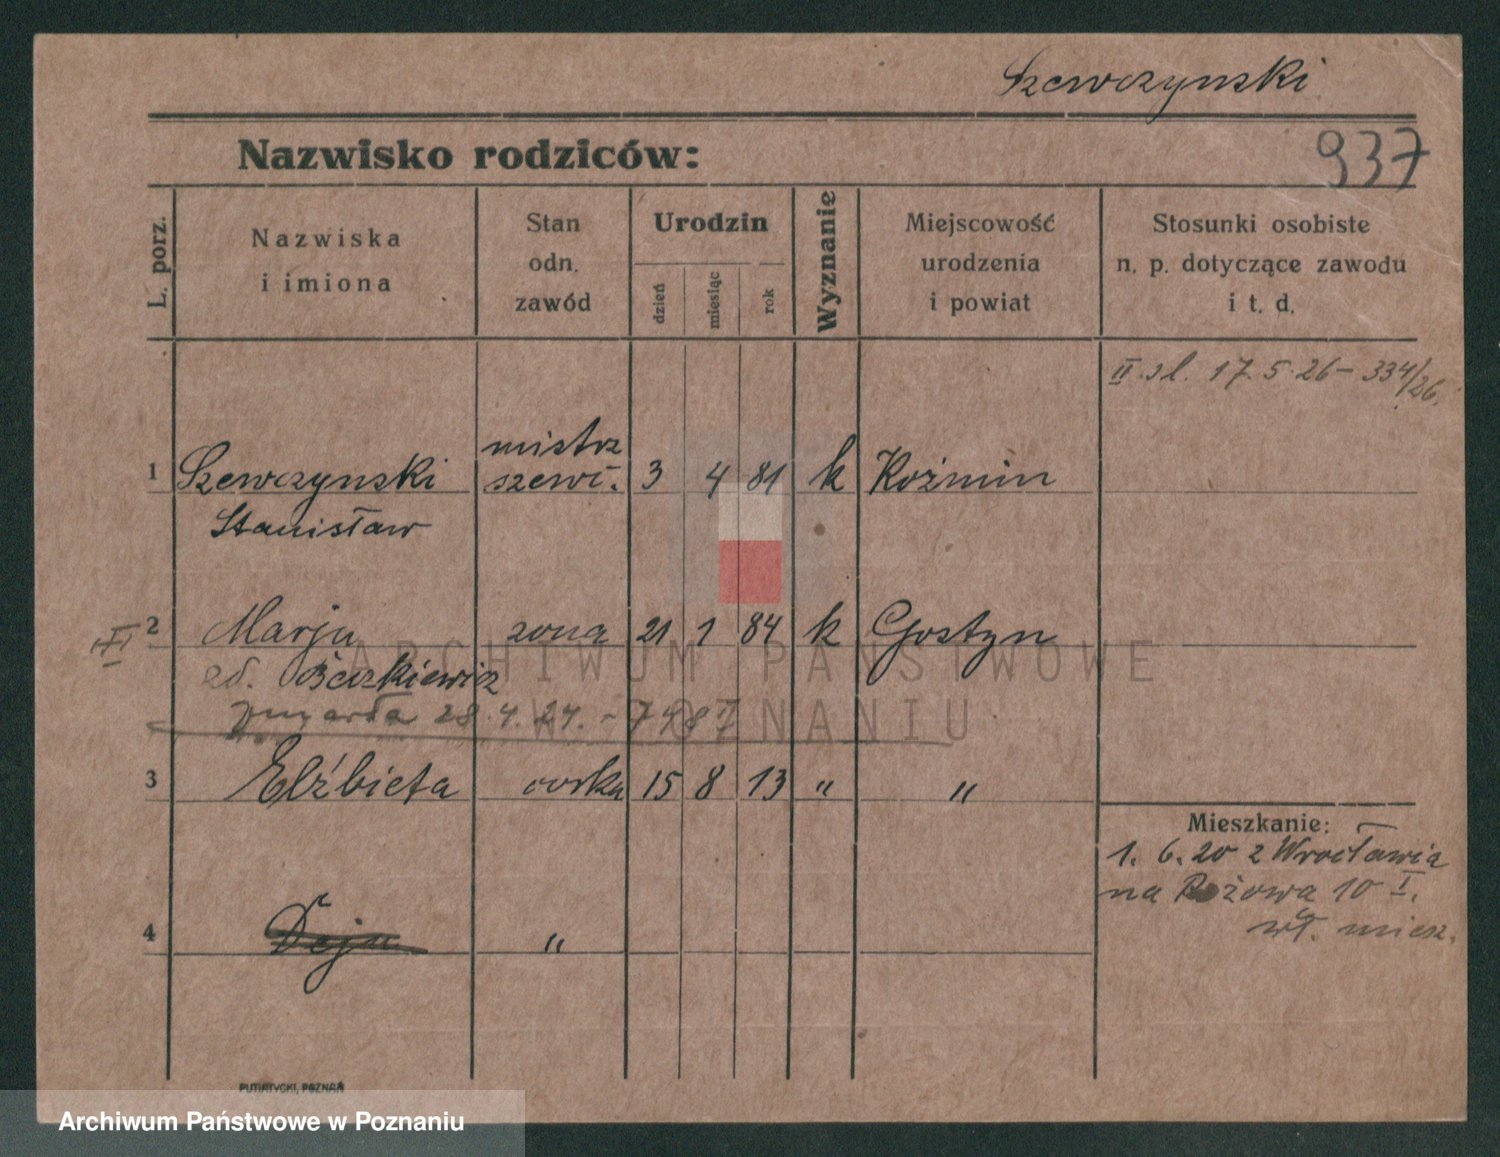 Szewczynski
Nazwisko rodziców:
937
L. porz.
Nazwiska
i imiona
Stan
odn.
zawód
Urodzin
dzień
miesiąc
rok
Wyznanie
Miejscowość
urodzenia
i powiat
Stosunki osobiste
n. p. dotyczące zawodu
i t. d.
II sl. 17.5.26 – 334/26.
mistrz
1 Szewczynski szewc. 3 4 81 k Koźmin
Stanisław
II 2 Marja zona 21 1 84 k Gostyn
zd.
zmarła 28.4.24. –
ARCHIWUM PAŃSTWOWE
W POZNANIU
3 Elżbieta corka 15 8 13 " "
Mieszkanie:
1. 6. 20 z Wrocławia
na Różowa 10 I.
wł. miesz.
4 "
PUTIATYCKI, POZNAŃ
Archiwum Państwowe w Poznaniu